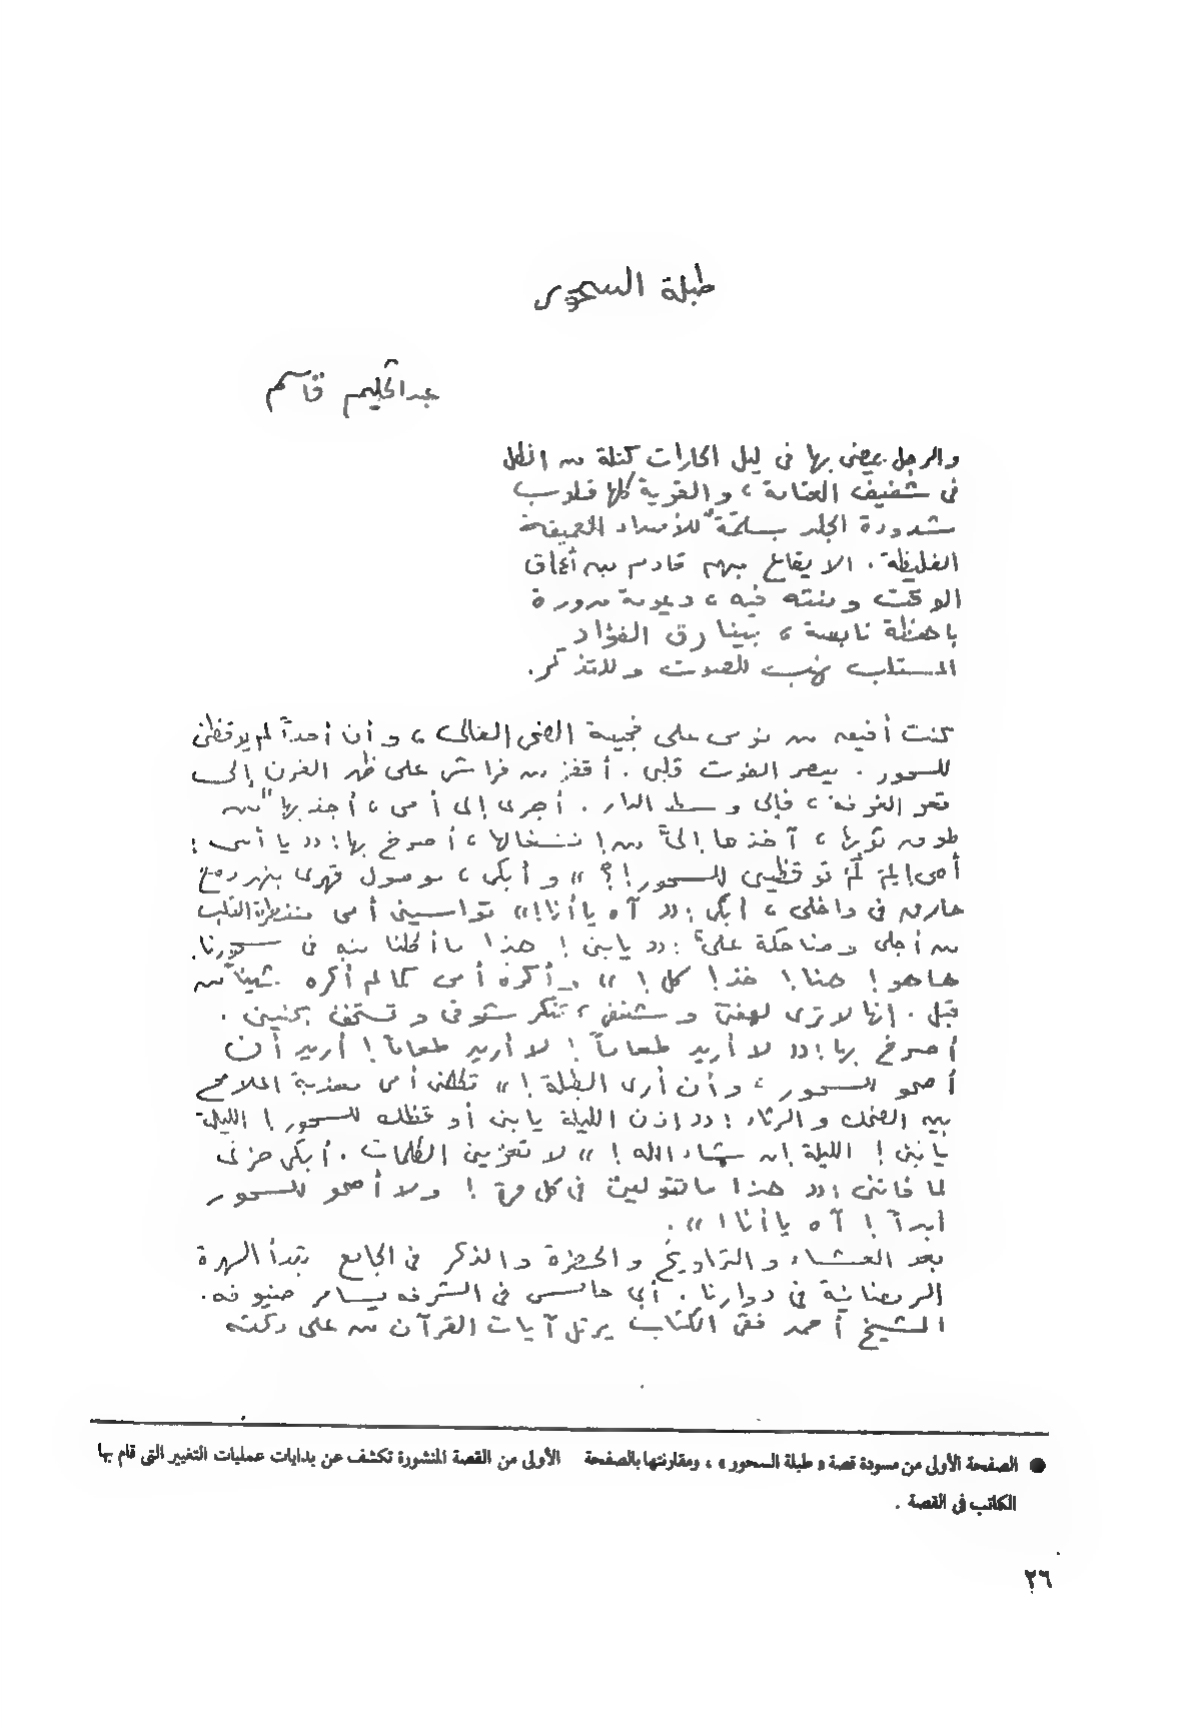 طبلة السحور
عبد الحكيم قاسم
والرجل يمضى بها فى ليل الحارات كتلة من الظل
فى شفيف العتامة، والقرية كلها قلوب
مشدودة الجلد للأصداء العميقة
الغليظة. الايقاع مبهم قادم من أعماق
الوقت ومنته فيه، ديمومة
بلحظة، بينا رق الفؤاد
المستلب نهب للصوت وللتذكر.
كنت أفيق من نومى على فجيعة الضحى العالى، وأن أحداً لم يوقظنى
للسحور. يعصر الفوت قلبى. أقفز من فراشى على ظهر الفرن إلى
قعر الغرفة، فإلى وسط الدار. أجرى إلى أمى، أجذبها من
طوق ثوبها، آخذها إلىَّ من انشغالها، أصرخ بها: «يا أمى!
أمى! لِمَ لَمْ توقظينى للسحور!؟» وأبكى، موصول قهرى بنهر دمع
حارق فى داخلى، أبكى: «آه يا أنا!» تواسينى أمى منفطرة القلب
من أجلى وضاحكة علىّ: «يا بنى! هذا ما أكلنا منه فى سحورنا.
ها هو! هنا! خذ! كل!» وأكره أمى كما لم أكره شيئاً من
قبل. إنها لا ترى لهفتى وشغفى، تنكر شوقى وتستخف بحنينى.
أصرخ بها: «لا أريد طعاماً! لا أريد طعاماً! أريد أن
أصحو للسحور، وأن أرى الطبلة!» تكلمنى أمى معذبة الملامح
بين الضحك والرثاء: «إذن الليلة يا بنى أوقظك للسحور! الليلة
يا بنى! الليلة إن شاء الله!» لا تعزينى الكلمات. أبكى حزنى
لما فاتنى: «هذا ما تقولين فى كل مرة! ولا أصحو للسحور
أبداً! آه يا أنا!».
بعد العشاء والتراويح والحضرة والذكر فى الجامع تبدأ السهرة
الرمضانية فى دوارنا. أبى جالس فى الشرفة يسامر ضيوفه.
الشيخ أحمد فقى الكتاب يرتل آيات القرآن من على دكته
● الصفحة الأولى من مسودة قصة «طبلة السحور»، ومقارنتها بالصفحة الأولى من القصة المنشورة تكشف عن بدايات عمليات التغيير التى قام بها
الكاتب فى القصة.
٢٦